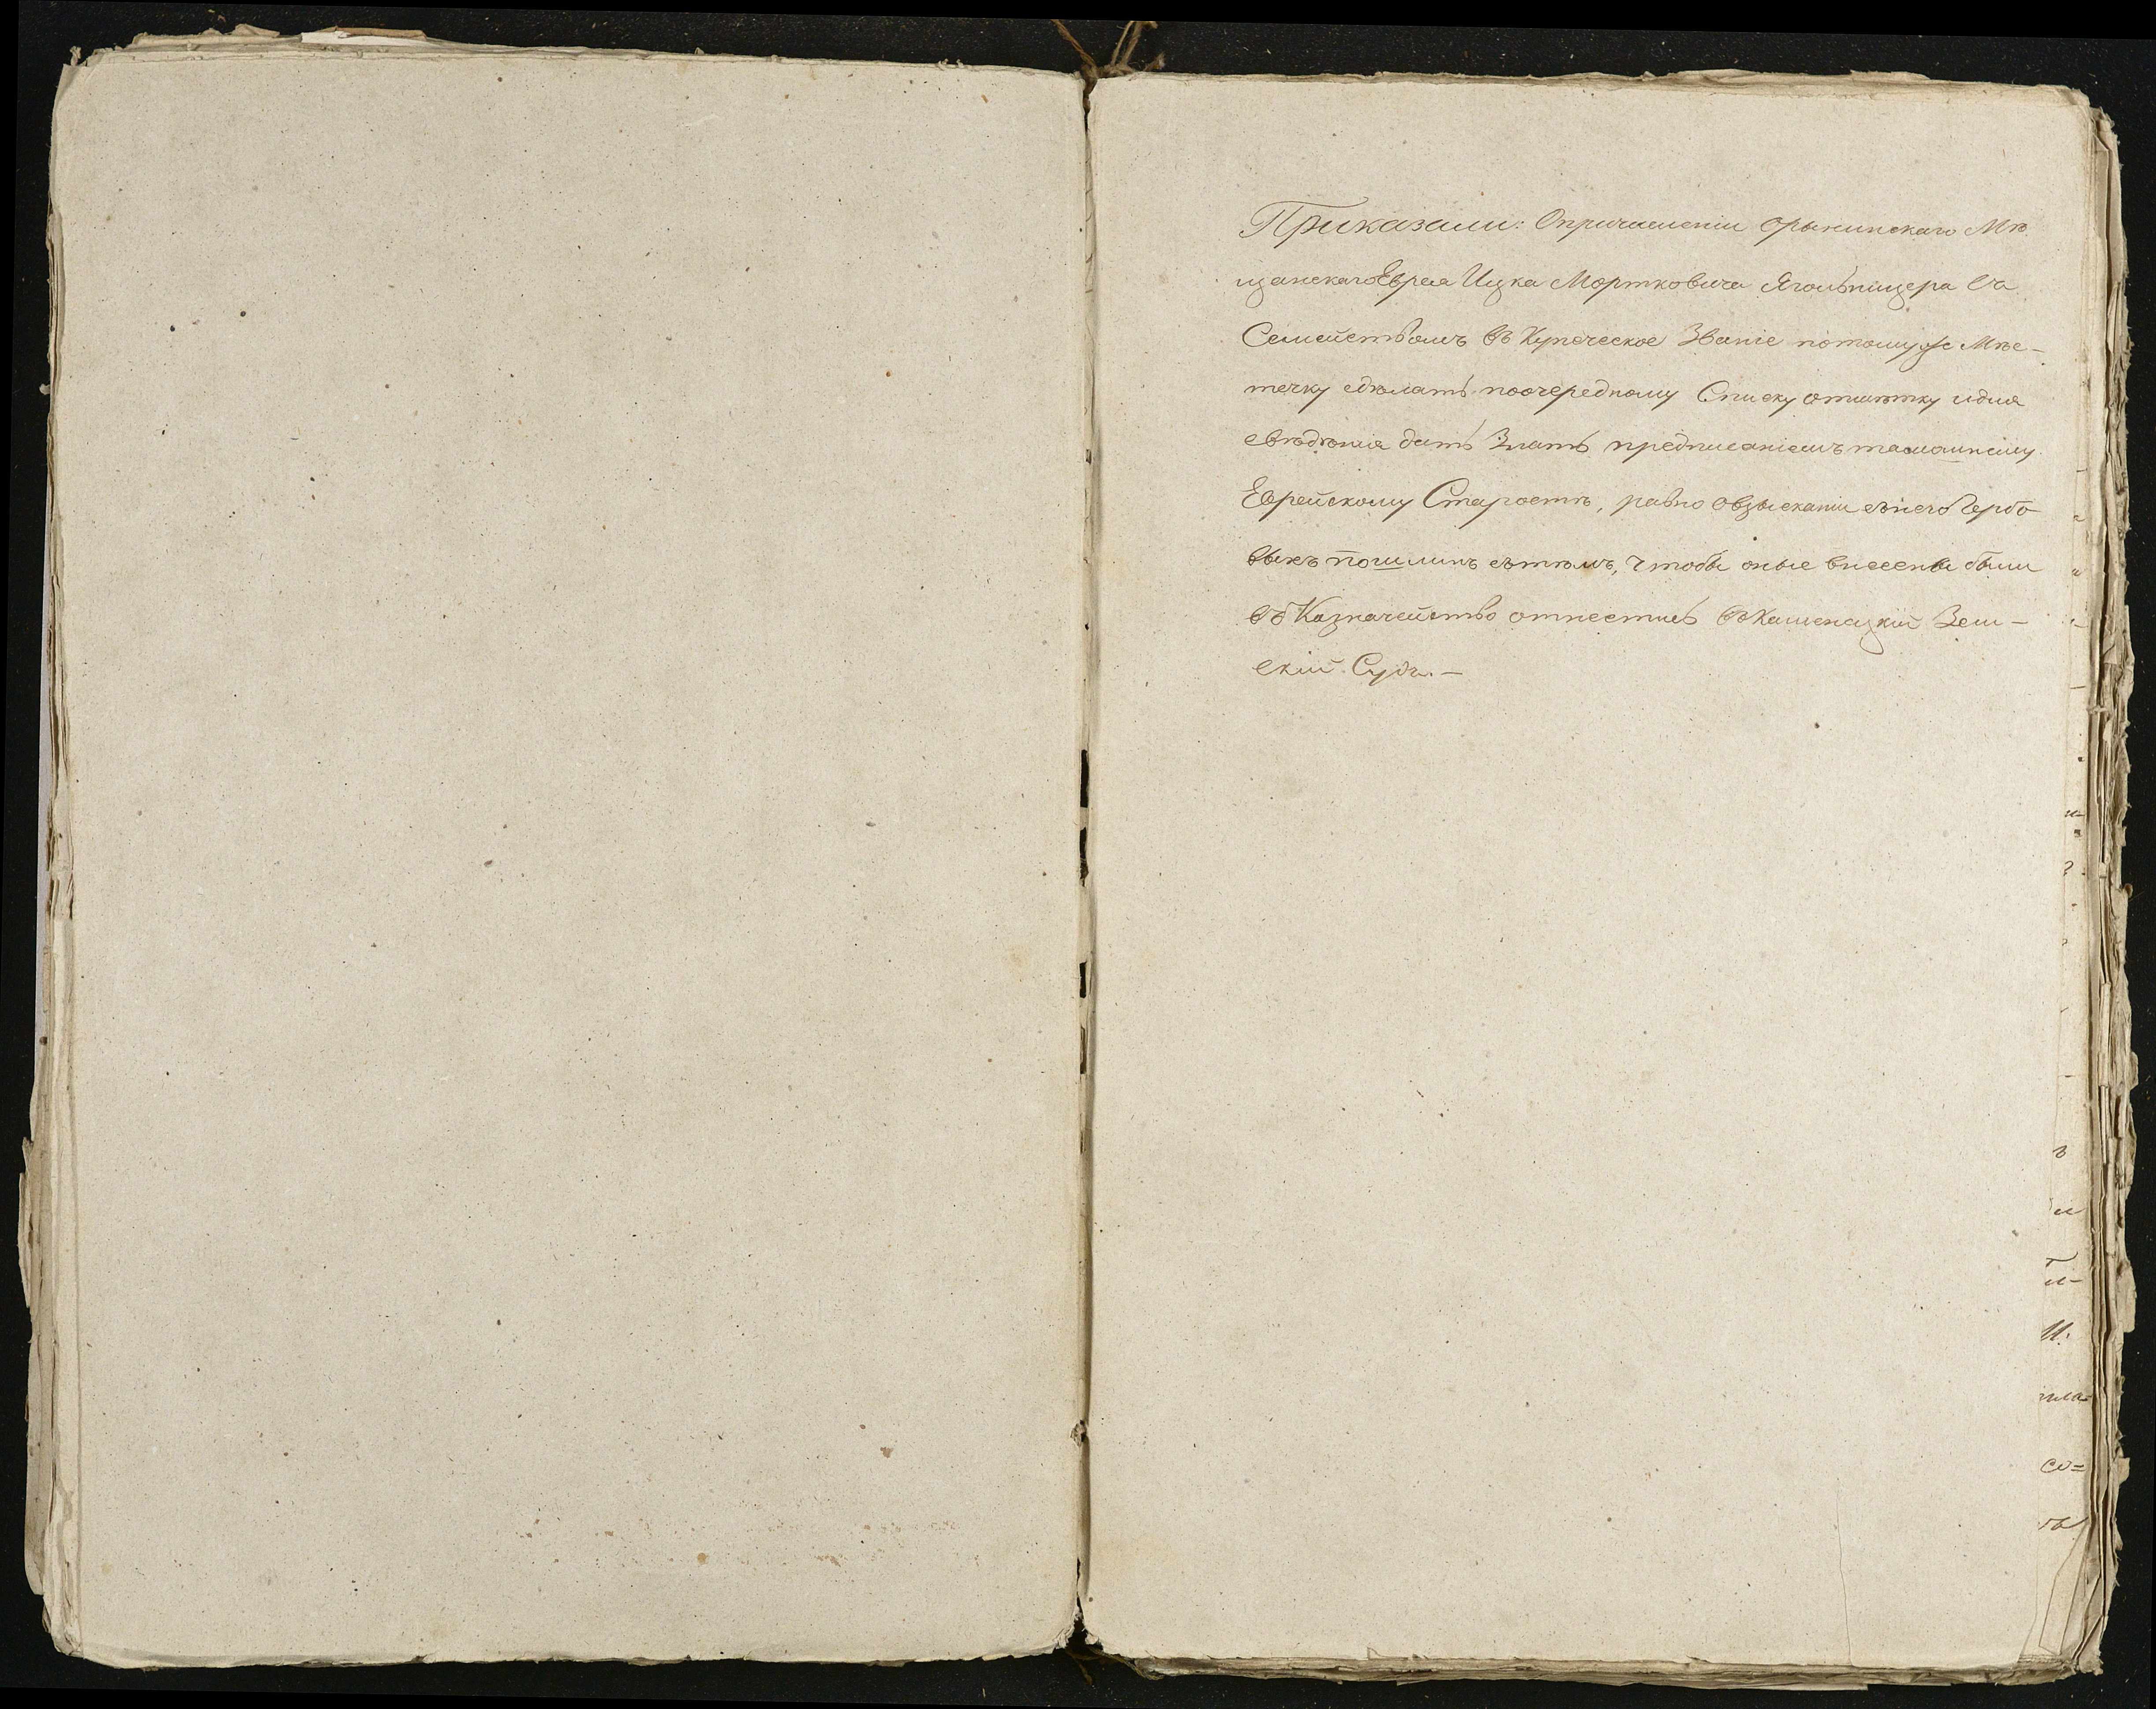 Приказали: Опричисленіи орынинскаго Мѣ
щанскаго Еврея Ицка Мортковича Ягольницера Съ
Семействомъ въ Купеческое Званіе потомуже Мѣс-
течку сдѣлать поочередному Списку отмѣтку идля
свѣдѣнія дать Знать предписаніемъ тамошнему
Еврейскому Старостѣ, равно овзысканіи снего Гербо
выхъ пошлинъ сътѣмъ, Чтобы оные внесены были
въ Казначейство отнестись въ Каменецкій Зем-
скій Судъ. —